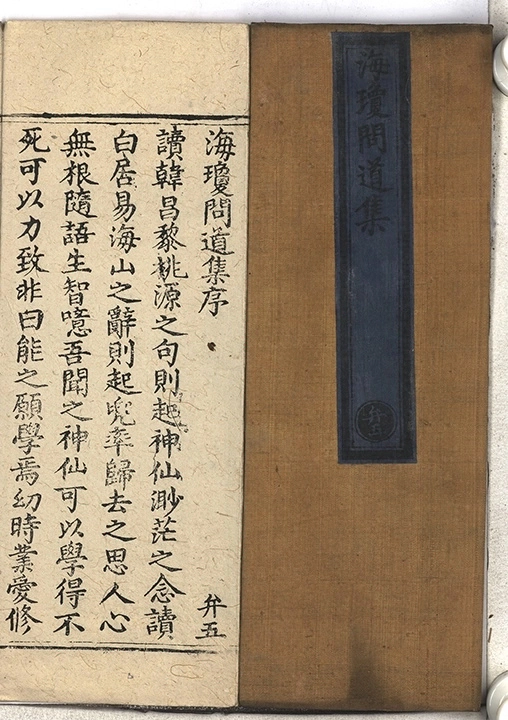 海瓊問道集
海瓊問道集序
弁五
讀韓昌黎桃源之句則起神仙渺茫之念讀
白居易海山之辭則起兜率歸去之思人心
無根隨語生智噫吾聞之神仙可以學得不
死可以力致非曰能之願學焉幼時業愛修